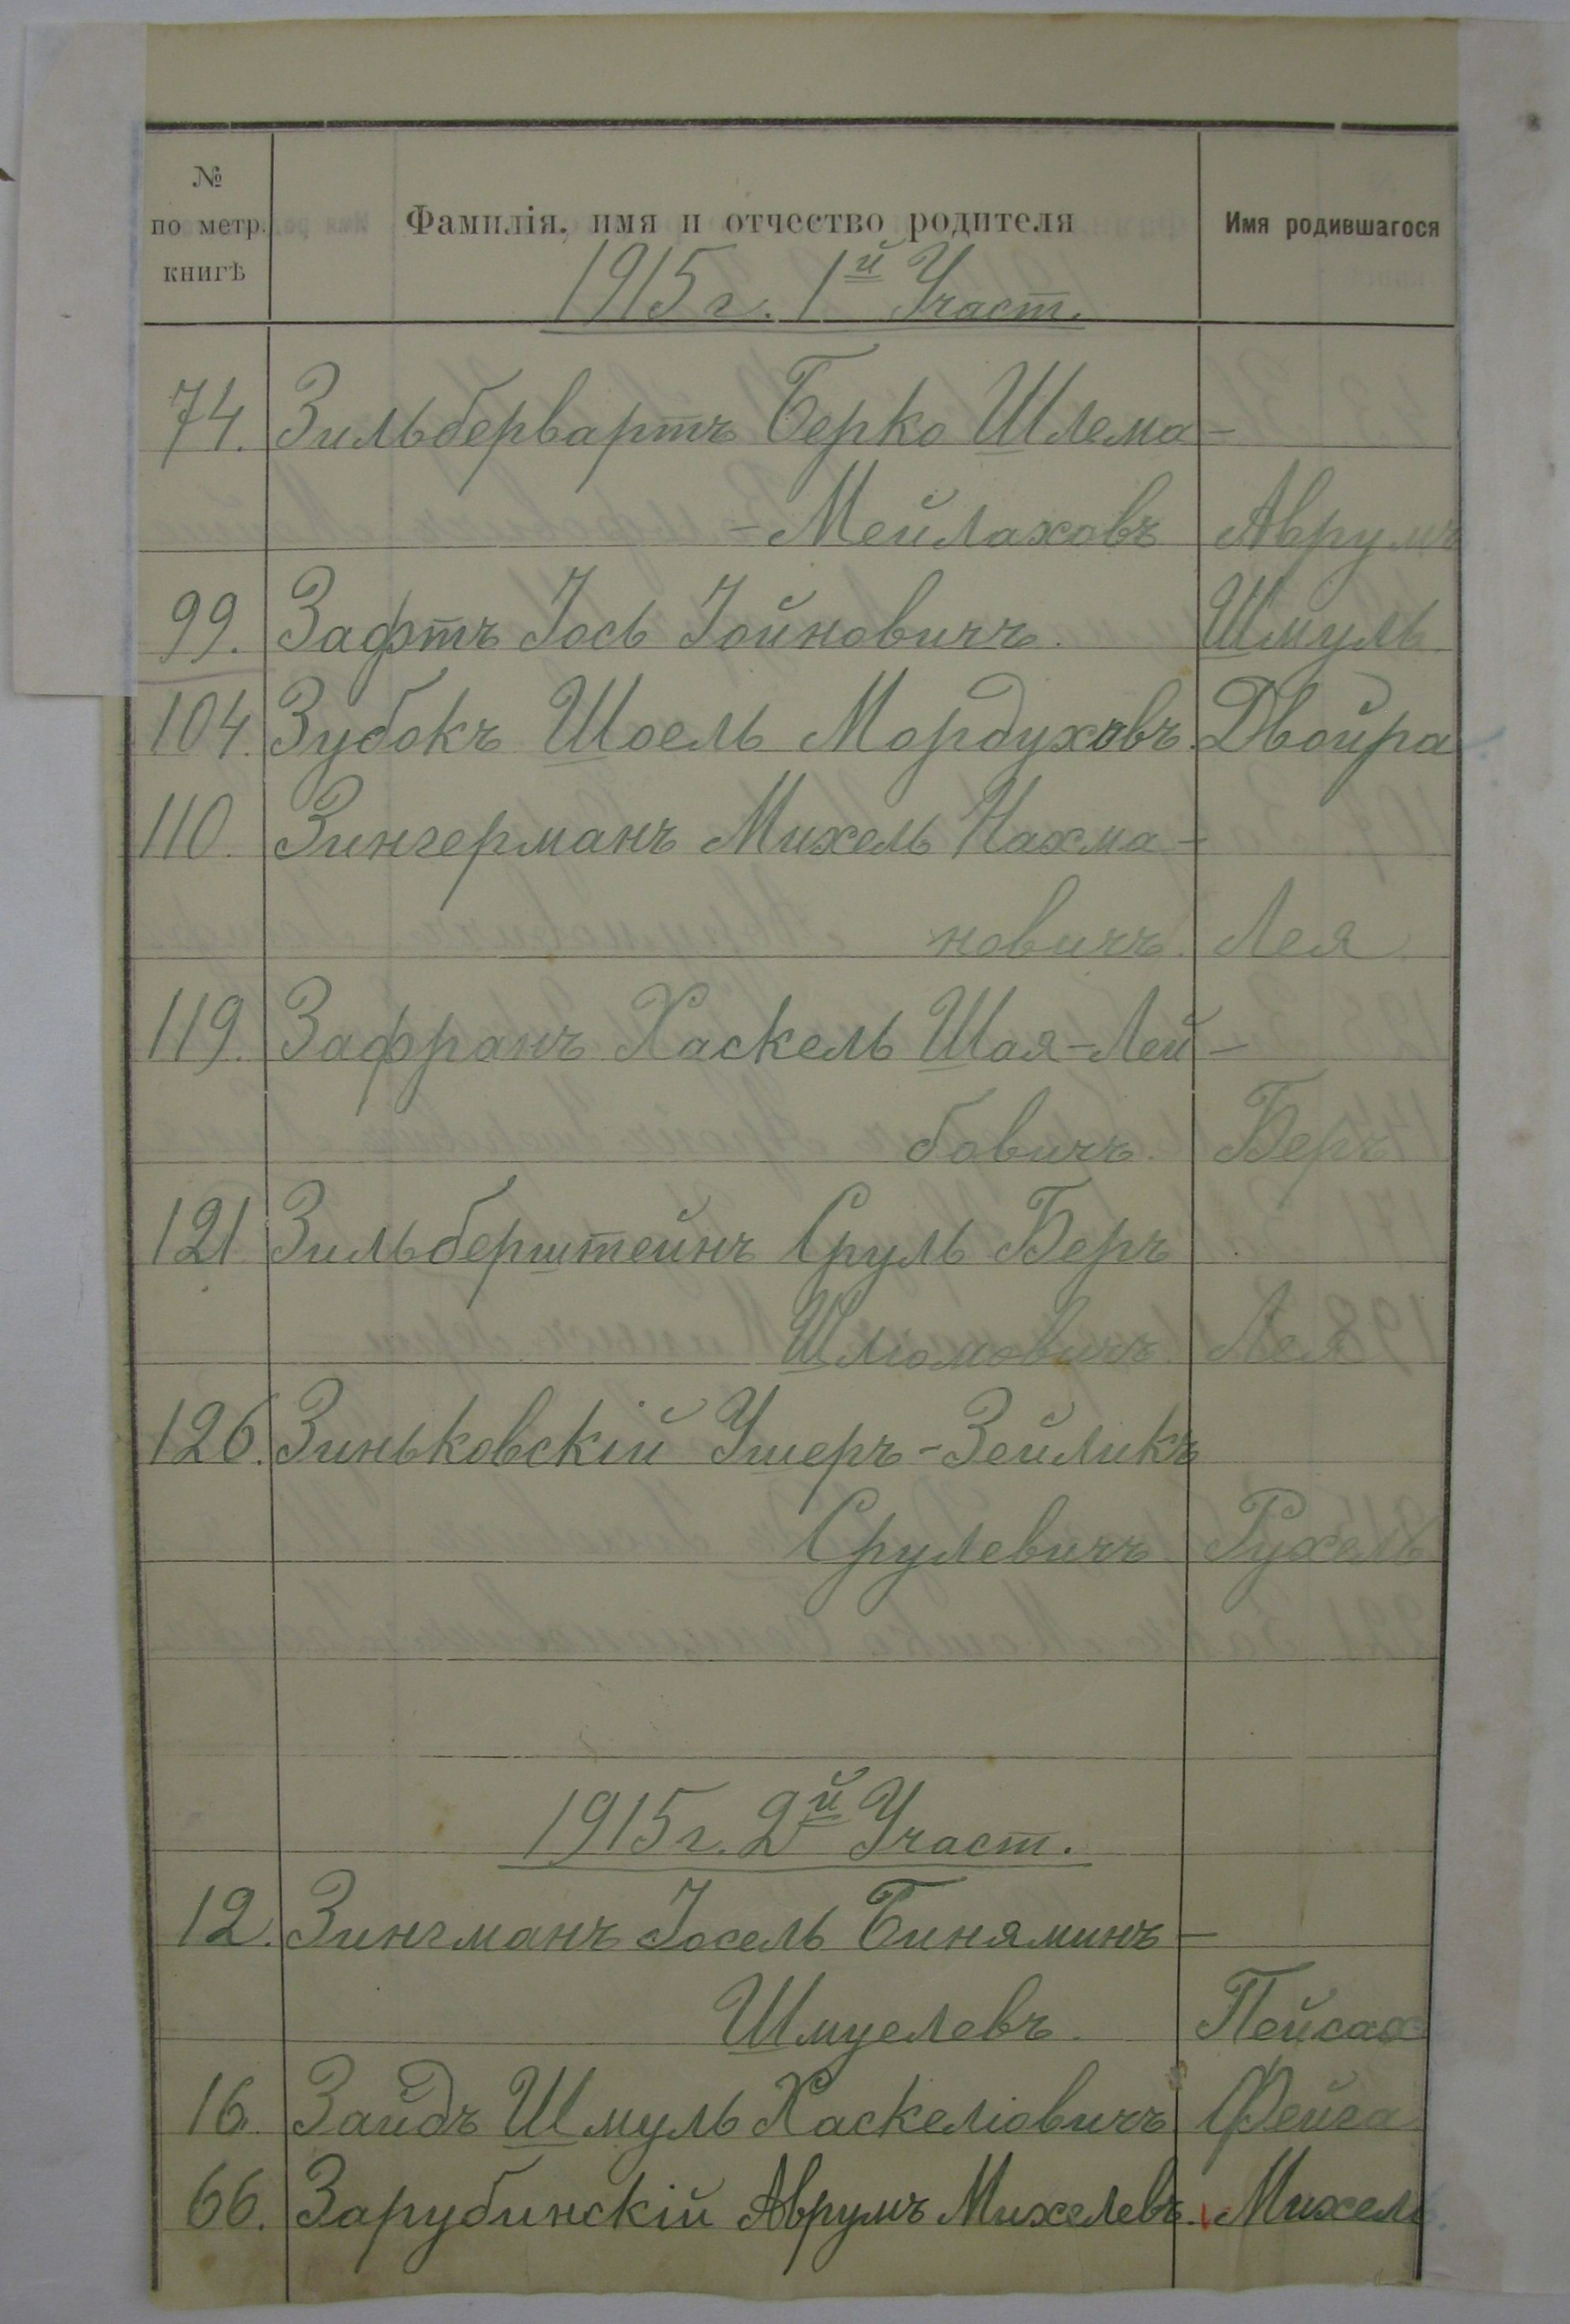 № по метр. книгѣ Фамилія, имя и отчество родителя Имя родившагося
1915 г. 1й Участ.
74. Зильбервартъ Берко Шлема-
-Мейлаховъ Аврумъ
99. Зафтъ Іось Іойновичъ. Шмуль
104. Зубокъ Шоель Мордуховъ. Двойра
110. Зингерманъ Михель Нахма-
новичъ. Лея
119. Зафранъ Хаскель Шая-Лей-
бовичъ. Беръ
121 Зильберштейнъ Сруль Беръ
Шлемовичъ Лея
126. Зиньковскій Ушеръ-Зейликъ
Срулевичъ Рухель
1915 г. 2й Участ.
12. Зингманъ Іосель Биняминъ-
Шмуелевъ. Пейсах
16. Зайдъ Шмуль Хаскеліовичъ Фейга
66. Зарубинскій Аврумъ Михелевъ. Михель.